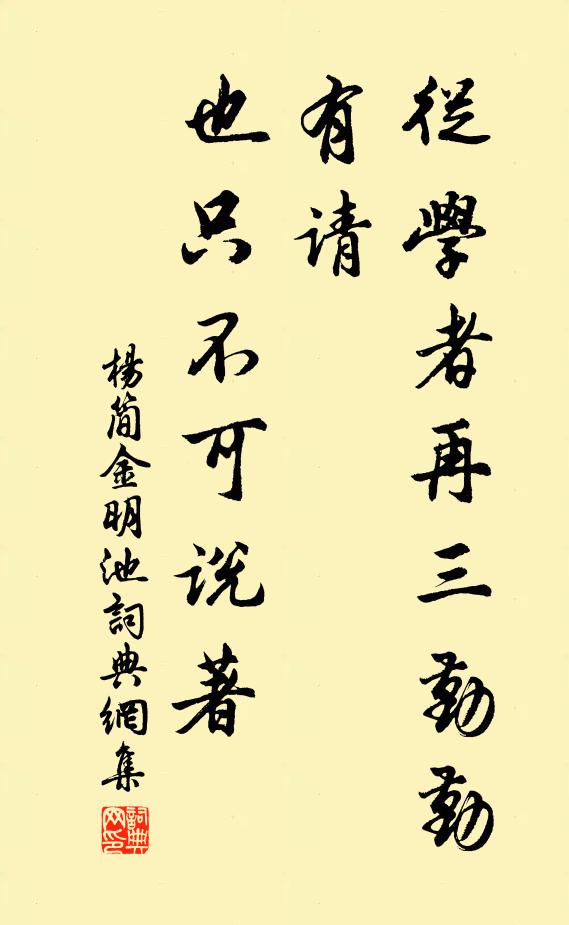 從學者再三勤勤
有请
也只不可説著
楊简金明池詞典網集
詞典网印